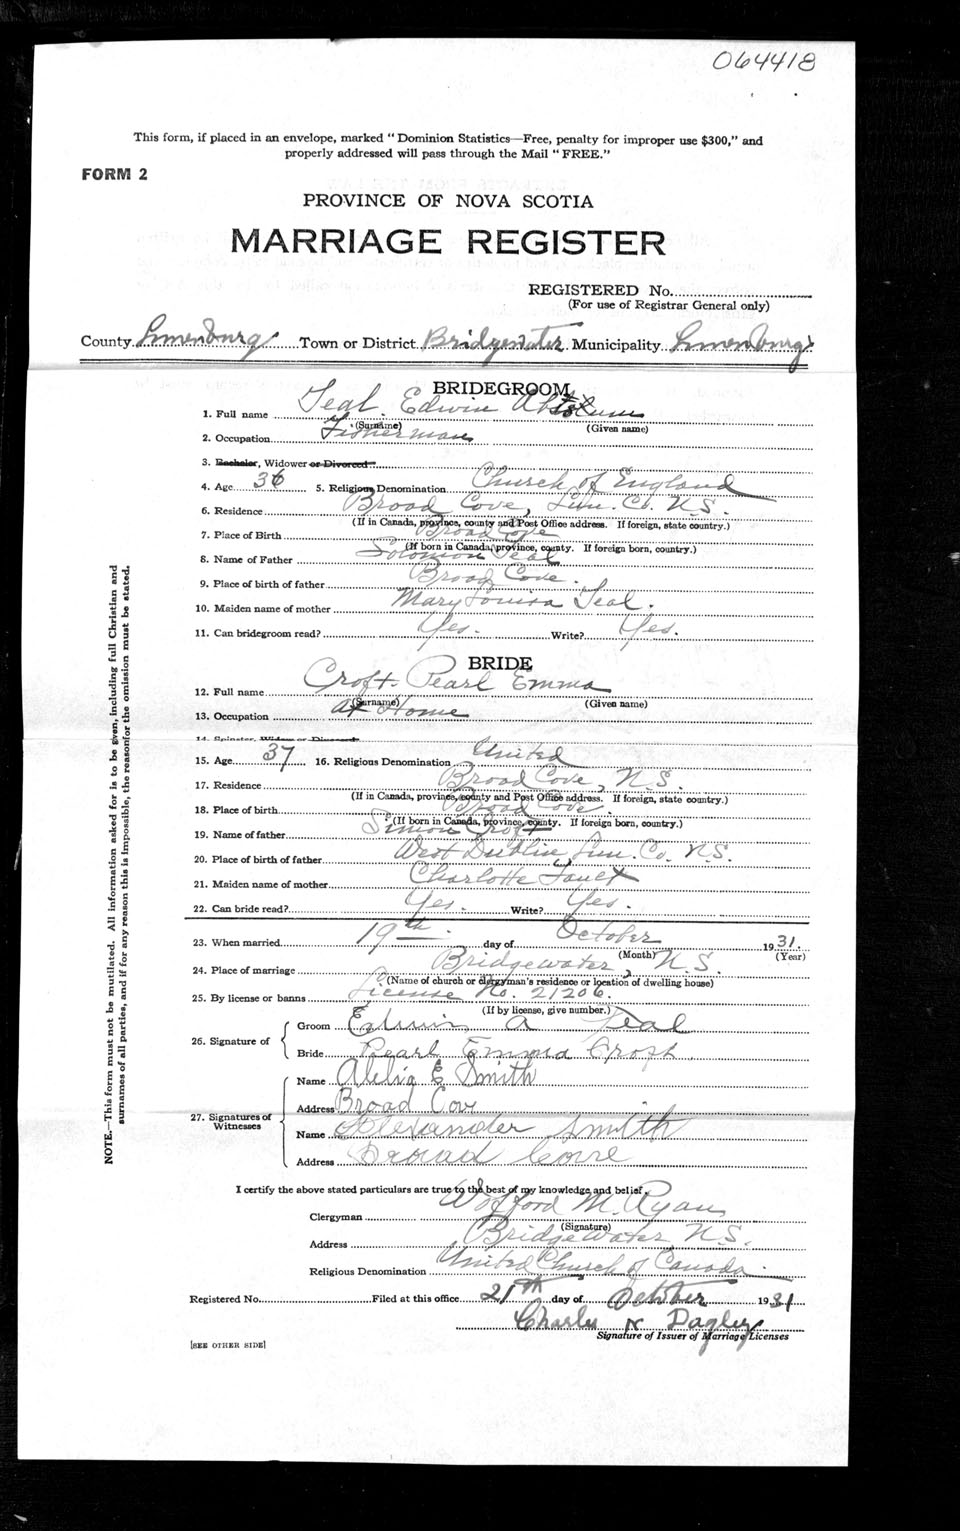 064418
This form, if placed in an envelope, marked "Dominion Statistics—Free, penalty for improper use $300," and
properly addressed will pass through the Mail "FREE."
FORM 2
PROVINCE OF NOVA SCOTIA
MARRIAGE REGISTER
REGISTERED No.
(For use of Registrar General only)
County Lunenburg Town or District Bridgewater Municipality Lunenburg
BRIDEGROOM
1. Full name Teal Edwin
(Surname) (Given name)
2. Occupation Fisherman
3. Bachelor, Widower or Divorced
4. Age 36 5. Religious Denomination Church of England
6. Residence Broad Cove, Lun. Co. N.S.
(If in Canada, province, county and Post Office address. If foreign, state country.)
7. Place of Birth Broad Cove
(If born in Canada, province, county. If foreign born, country.)
8. Name of Father Solomon Teal
9. Place of birth of father Broad Cove.
10. Maiden name of mother Mary Louisa Teal.
11. Can bridegroom read? Yes. Write? Yes.
BRIDE
12. Full name Croft Pearl Emma
(Surname) (Given name)
13. Occupation At Home
14. Spinster, Widow or Divorced
15. Age 37 16. Religious Denomination United
17. Residence Broad Cove, N.S.
(If in Canada, province, county and Post Office address. If foreign, state country.)
18. Place of birth Broad Cove.
(If born in Canada, province, county. If foreign born, country.)
19. Name of father Simon Croft
20. Place of birth of father West Dublin, Lun. Co. N.S.
21. Maiden name of mother Charlotte
22. Can bride read? Yes. Write? Yes.
23. When married 19th day of October 1931.
(Month) (Year)
24. Place of marriage Bridgewater, N.S.
(Name of church or clergyman's residence or location of dwelling house)
25. By license or banns License No. 21206.
(If by license, give number.)
26. Signature of
Groom Edwin A Teal
Bride Pearl Emma Croft
27. Signatures of Witnesses
Name E Smith
Address Broad Cove
Name Alexander Smith
Address Broad Cove
I certify the above stated particulars are true to the best of my knowledge and belief.
Clergyman Wofford M. Ryan
(Signature)
Address Bridgewater N.S.
Religious Denomination United Church of Canada
Registered No. Filed at this office 21th day of October 1931
Charles N Dagley
Signature of Issuer of Marriage Licenses
[SEE OTHER SIDE]
NOTE.—This form must not be mutilated. All information asked for is to be given, including full Christian and
surnames of all parties, and if for any reason this is impossible, the reason for the omission must be stated.